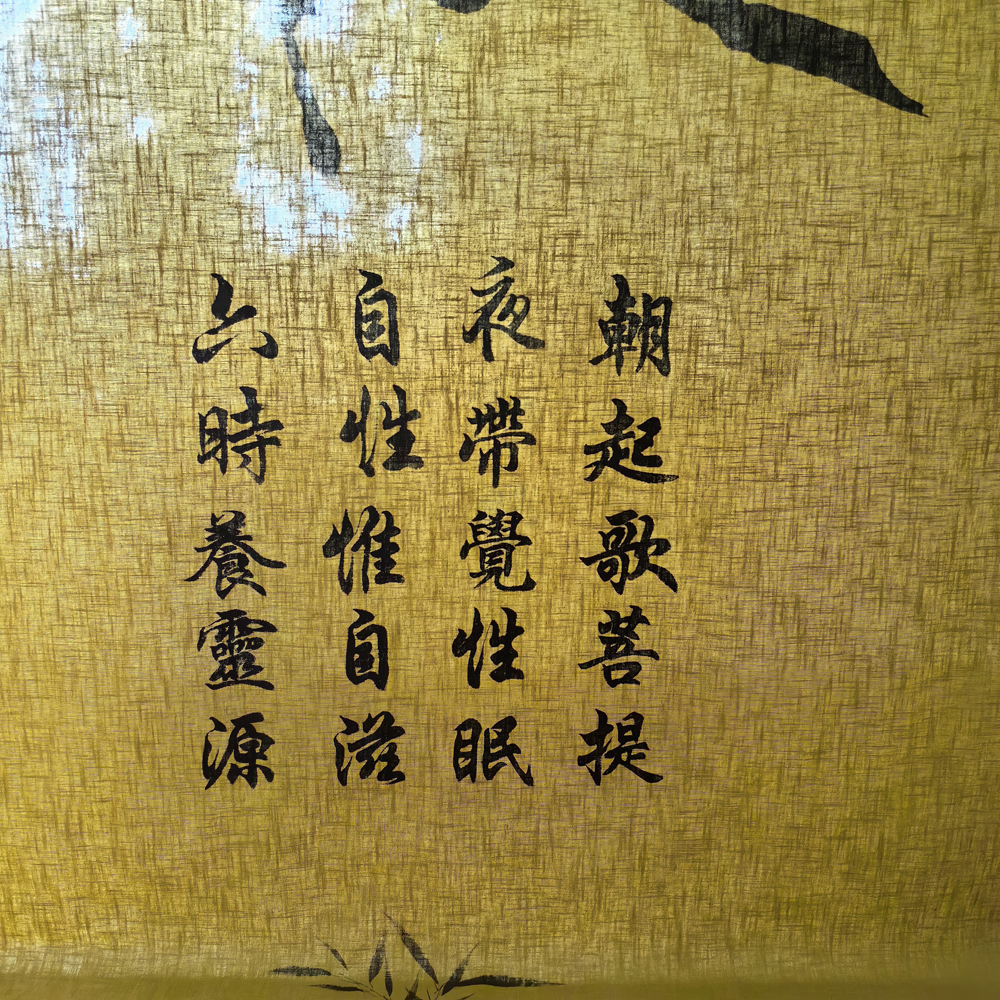 朝起歌菩提
夜帶覺性眠
自性惟自滋
六時養靈源